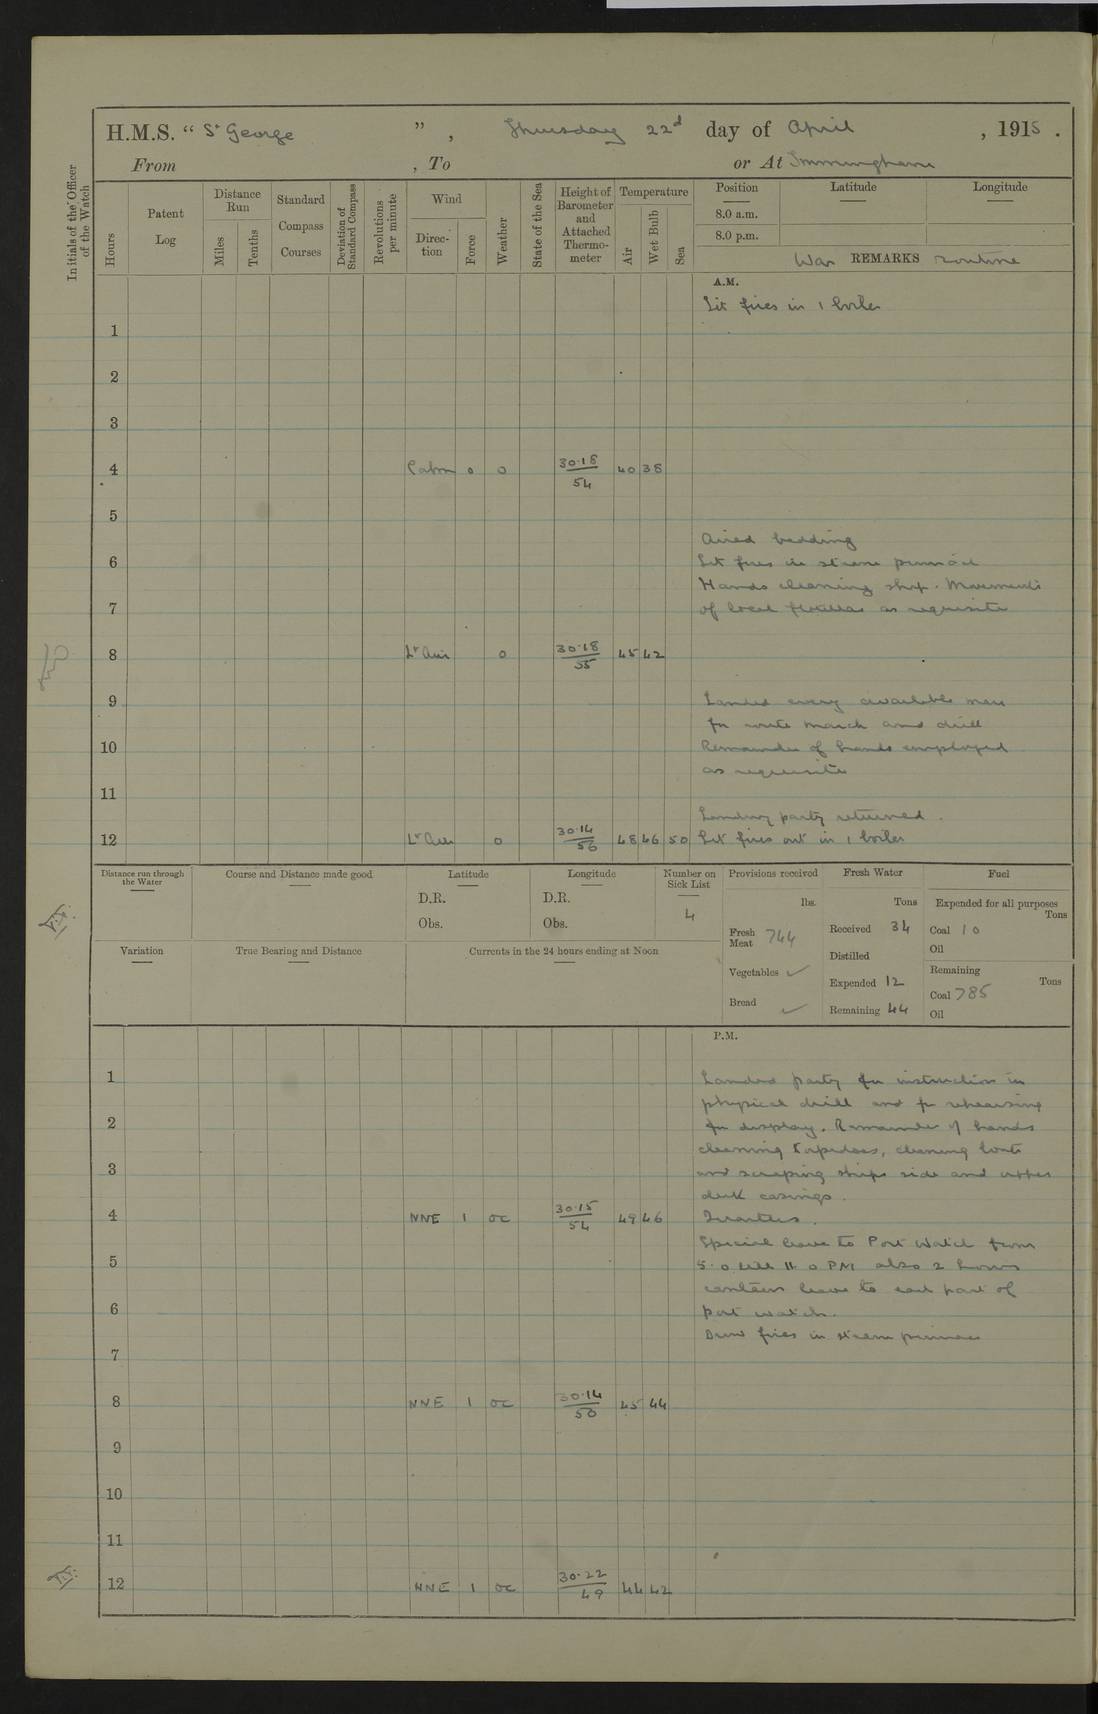 H.M.S. “ St George ” , Thursday 22d day of April , 1915 .
From , To or At Immingham
Initials of the Officer of the Watch
Hours
Patent Log
Distance Run
Miles
Tenths
Standard Compass Courses
Deviation of Standard Compass
Revolutions per minute
Wind
Direction
Force
Weather
State of the Sea
Height of Barometer and Attached Thermometer
Temperature
Air
Wet Bulb
Sea
Position Latitude Longitude
8.0 a.m.
8.0 p.m.
War REMARKS routine
A.M.
Lit fires in 1 boiler
1
2
3
4 Calm 0 0 30·18 54 40 38
5
Aired bedding
6 Lit fires in steam pinnace
Hands cleaning ship. Movements
7 of local flotillas as requisite
8 Lt Airs 0 30·18 55 45 42
9 Landed every available man
for route march and drill
10 Remainder of hands employed
as requisite
11
Landing party returned.
12 Lt Airs 0 30·14 56 48 46 50 Let fires out in 1 boiler
Distance run through the Water
Course and Distance made good
Latitude
D.R.
Obs.
Longitude
D.R.
Obs.
Number on Sick List
4
Variation
True Bearing and Distance
Currents in the 24 hours ending at Noon
Provisions received
lbs.
Fresh Meat 744
Vegetables ✓
Bread ✓
Fresh Water
Tons
Received 34
Distilled
Expended 12
Remaining 44
Fuel
Expended for all purposes
Tons
Coal 10
Oil
Remaining
Tons
Coal 785
Oil
P.M.
1 Landed party for instruction in
physical drill and for rehearsing
2 for display. Remainder of hands
cleaning torpedoes, cleaning boats
3 and scraping ships side and upper
deck casings.
4 NNE 1 oc 30·15 54 49 46 Quarters.
Special leave to Port Watch from
5 5.0 till 11.0 PM also 2 hours
canteen leave to each part of
6 port watch.
Drew fires in steam pinnace
7
8 NNE 1 oc 30·14 50 45 44
9
10
11
12 NNE 1 oc 30·22 49 44 42